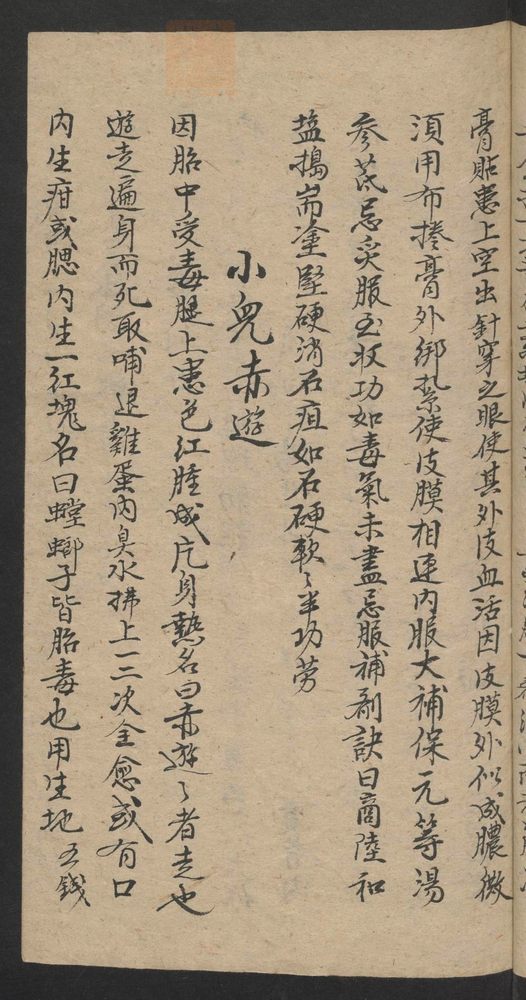 膏貼患上空出針穿之眼使其外皮血活因皮膜外似成膿微
須用布捲膏外綁紮使皮膜相連內服大補保元等湯
參芪忌炙服立收功如毒氣未盡忌服補劑訣曰商陸和
塩搗耑塗堅硬消石疽如石硬軟々半功劳
小兒赤遊
因胎中受毒腿上患色紅腫成片身熱名曰赤遊々者走也
遊走遍身而死取哺退雞蛋內臭水拂上一二次全愈或有口
內生疳或腮內生一紅塊名曰螳螂子皆胎毒也用生地五錢